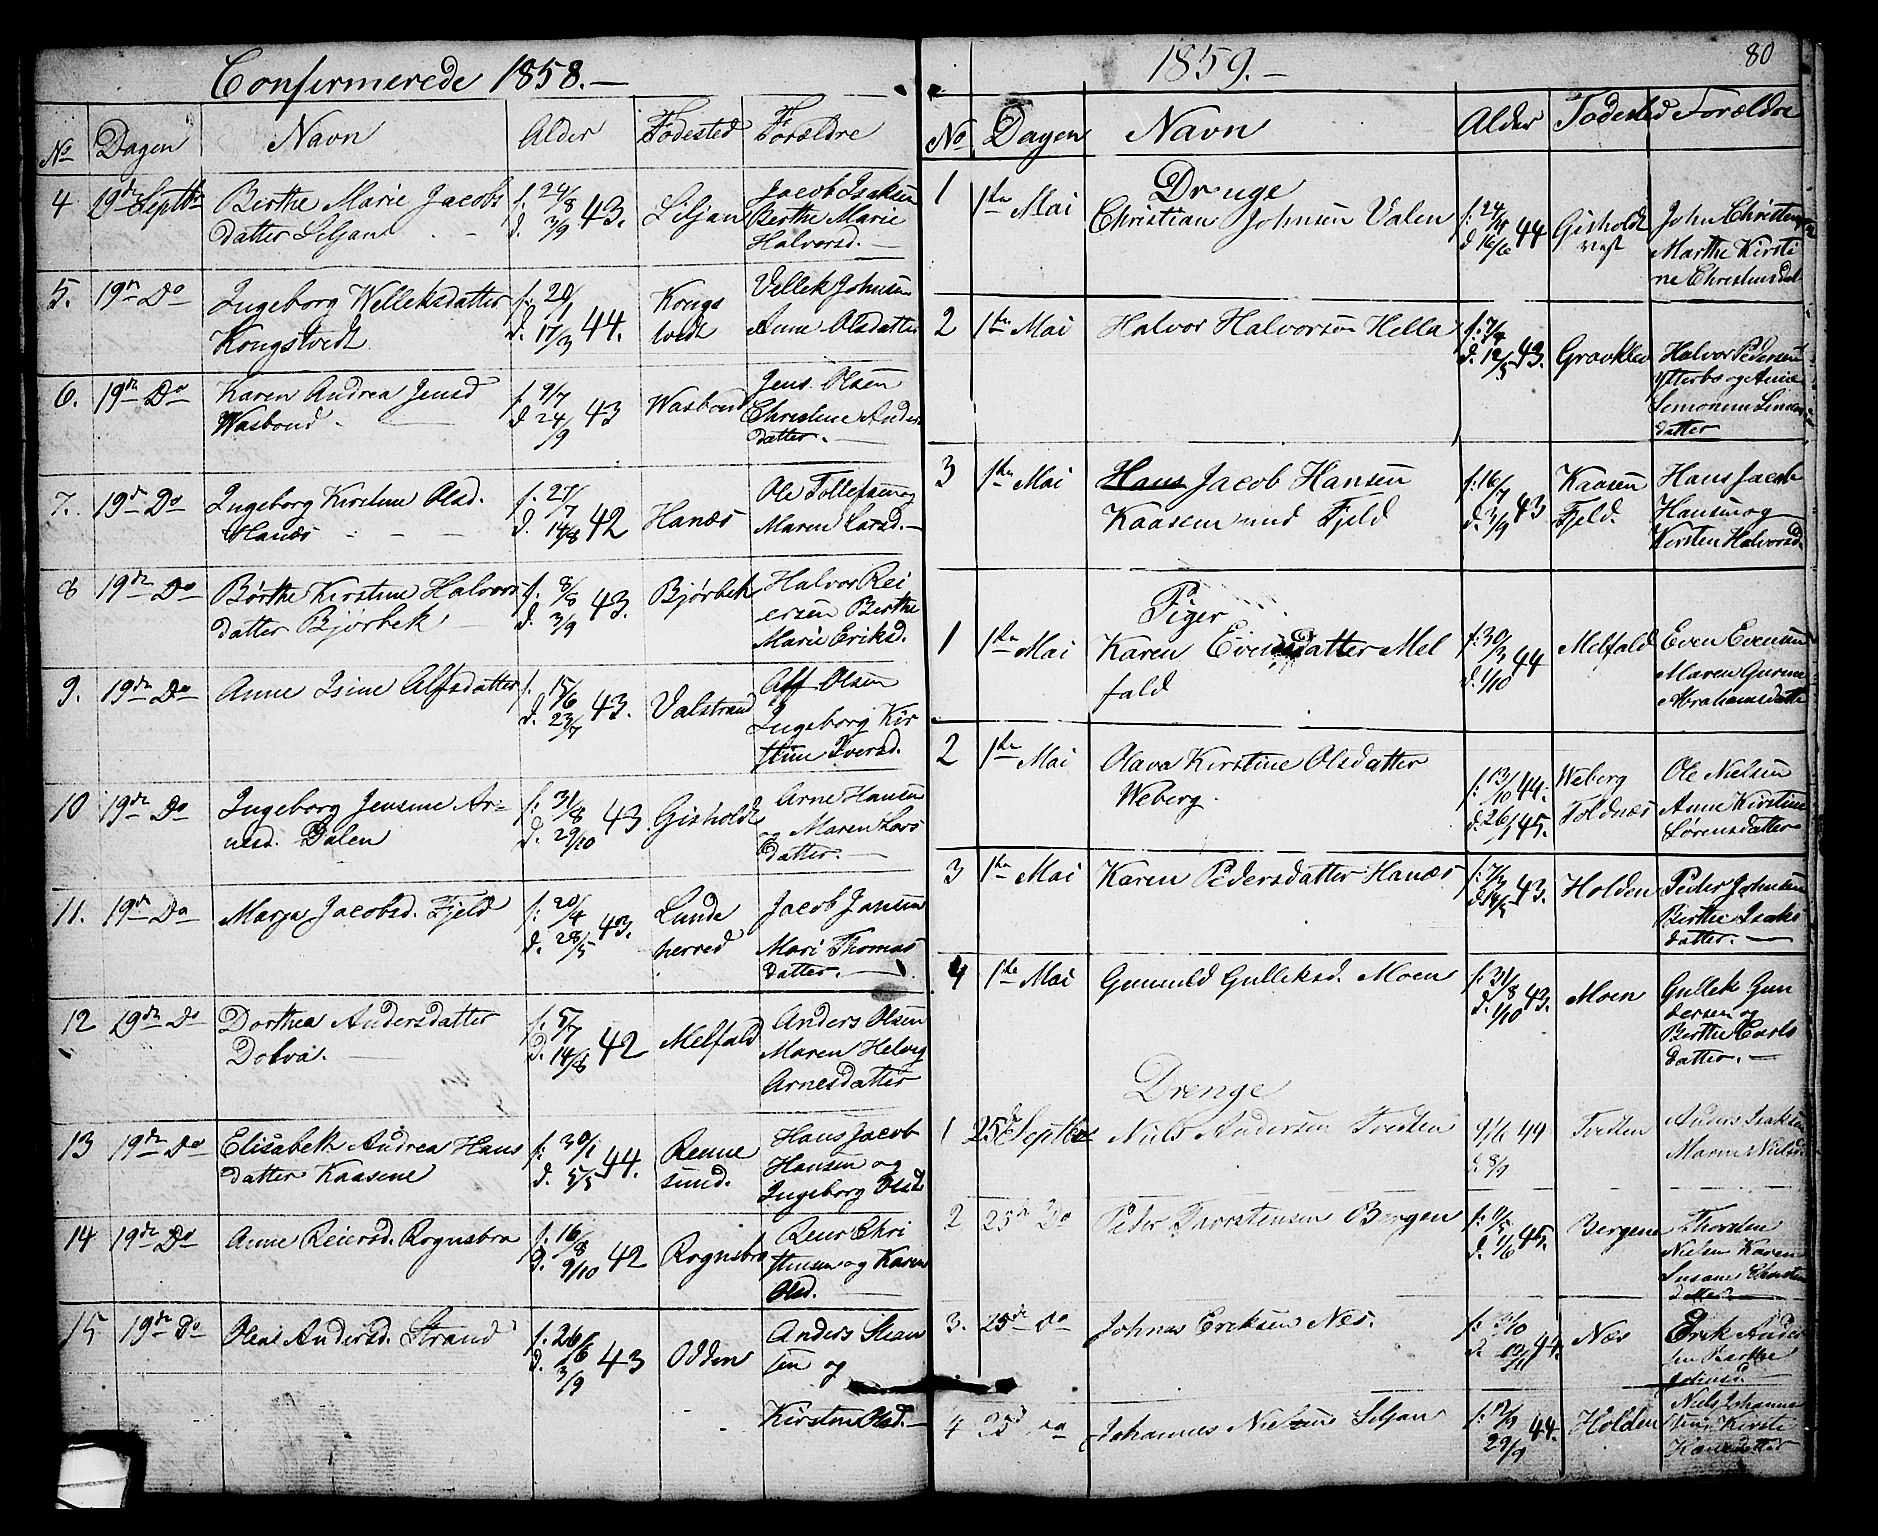 Confirmerede 1858.—
No Dagen Navn Alder Fødested Forældre
4 19de Septbr Berthe Marie Jacobs f. 24/8 43. Siljan Jacob Isaksen
datter Siljan d. 3/9 Berthe Marie
Halvorsd.—
5. 19de Do Ingeborg Welleksdatter f. 20/1 44. Kongs Vellek Johnsen
Kongstvedt d. 17/3 tvedt Anne Olsdatter
6. 19de Do Karen Andrea Jensd f. 9/7 43 Wasbond Jens Olsen
Wasbond. d. 24/9 Christine Anders
datter.—
7. 19de Do Ingeborg Kirstine Olsd. f. 27/7 42 Hanæs Ole Tollefsen og
Hanæs d. 14/8 Maren Larsd.—
8 19de Do Børthe Kirstine Halvors f. 8/8 43. Bjørbek Halvor Rei
datter Bjørbek d. 3/9 ersen Berthe
Marie Eriksd.
9. 19de Do Anne Isine Alfsdatter f. 15/6 43. Valstrand Alf Olsen
d. 23/7 Ingeborg Kir
stine Iversd.
10 19de Do Ingeborg Jensine Ar- f. 31/8 43. Gisholdt Arne Hansen
nesd. Dalen d. 29/10 og Maren Lars
datter.—
11. 19de Do Marja Jacobsd. Fjeld f. 20/4 43. Lunde Jacob Jansen
d. 28/5 herred Mari Thomas
datter.—
12 19de Do Dorthea Andersdatter f. 5/7 42 Melfald Anders Olsen
Dolva. d. 14/8 Maren Helvig
Arnesdatter
13 19de Do Elisabeth Andrea Hans f. 30/1 44. Renne Hans Jacob
datter Kaasene d. 5/5 sund. Hansen og
Ingeborg Olsd
14 19de Do Anne Reiersd. Rognsbro f. 16/8 42 Rognsbro Reier Chri
d. 9/10 stensen og Karen
Olsd.
15 19de Do Olene Andersd. Strand f. 26/6 43 Odden Anders
d. 3/9 sen og
Kirsten Olsd.—
1859.— 80
No Dagen Navn Alder Fødested Forældre
Drenge
1 1ste Mai Christian Johnsen Valen f. 44 Gisholdt John Christensen
d. 16/6 Marthe Kirsti
ne Christensd
2 1ste Mai Halvor Halvorsen Hella f. 7/4 43. Gravklev Halvor Pedersen
d. 12/5 Ytterbø og Anne
Simonine Simon
datter
3 1ste Mai Hans Jacob Hansen f. 16/7 43 Kaasen Hans Jacob
Kaasene und Fjeld d. 3/9 Fjeld. Hansen og
Kirsten Halvorsd.
Piger
1 1ste Mai Karen Evensdatter Mel f. 30/3 44 Melfald Even Evensen
fald d. 1/10 Maren Gurine
Abrahamsdatter
2 1ste Mai Olava Kirstine Olsdatter f. 13/10 44. Weberg Ole Nielsen
Weberg. d. 26/1 45. Foldnæs Anne Kirstine
Sørensdatter
3 1ste Mai Karen Pedersdatter Hanæs f. 7/3 43. Holden Peder Johnsen
d. 14/5 Berthe Isaks
datter.—
4 1ste Mai Gunuld Gulleksd. Moen f. 31/8 43. Moen Gullek Gun
d. 1/10 dersen og
Berthe Carls
datter.—
Drenge
1 25de Septbr Niels Andersen Tveten 9/6 44 Tveten Anders Isaksen
d. 8/9 Maren Nielsd.
2 25de Do Peder Thorstensen Bergen f. 9/5 45. Bergene Thorsten
d. 1/6 Nielsen Karen
Susanne Karsten
datter
3. 25de Do Johnas Eriksen Nes. f. 44. Næs Erik Anders
sen Berthe
Johnsd.
4 25de Do Johannes Nielsen Siljan f. 44. Holden Niels Johanne
29/9 sen Kirsti
datter